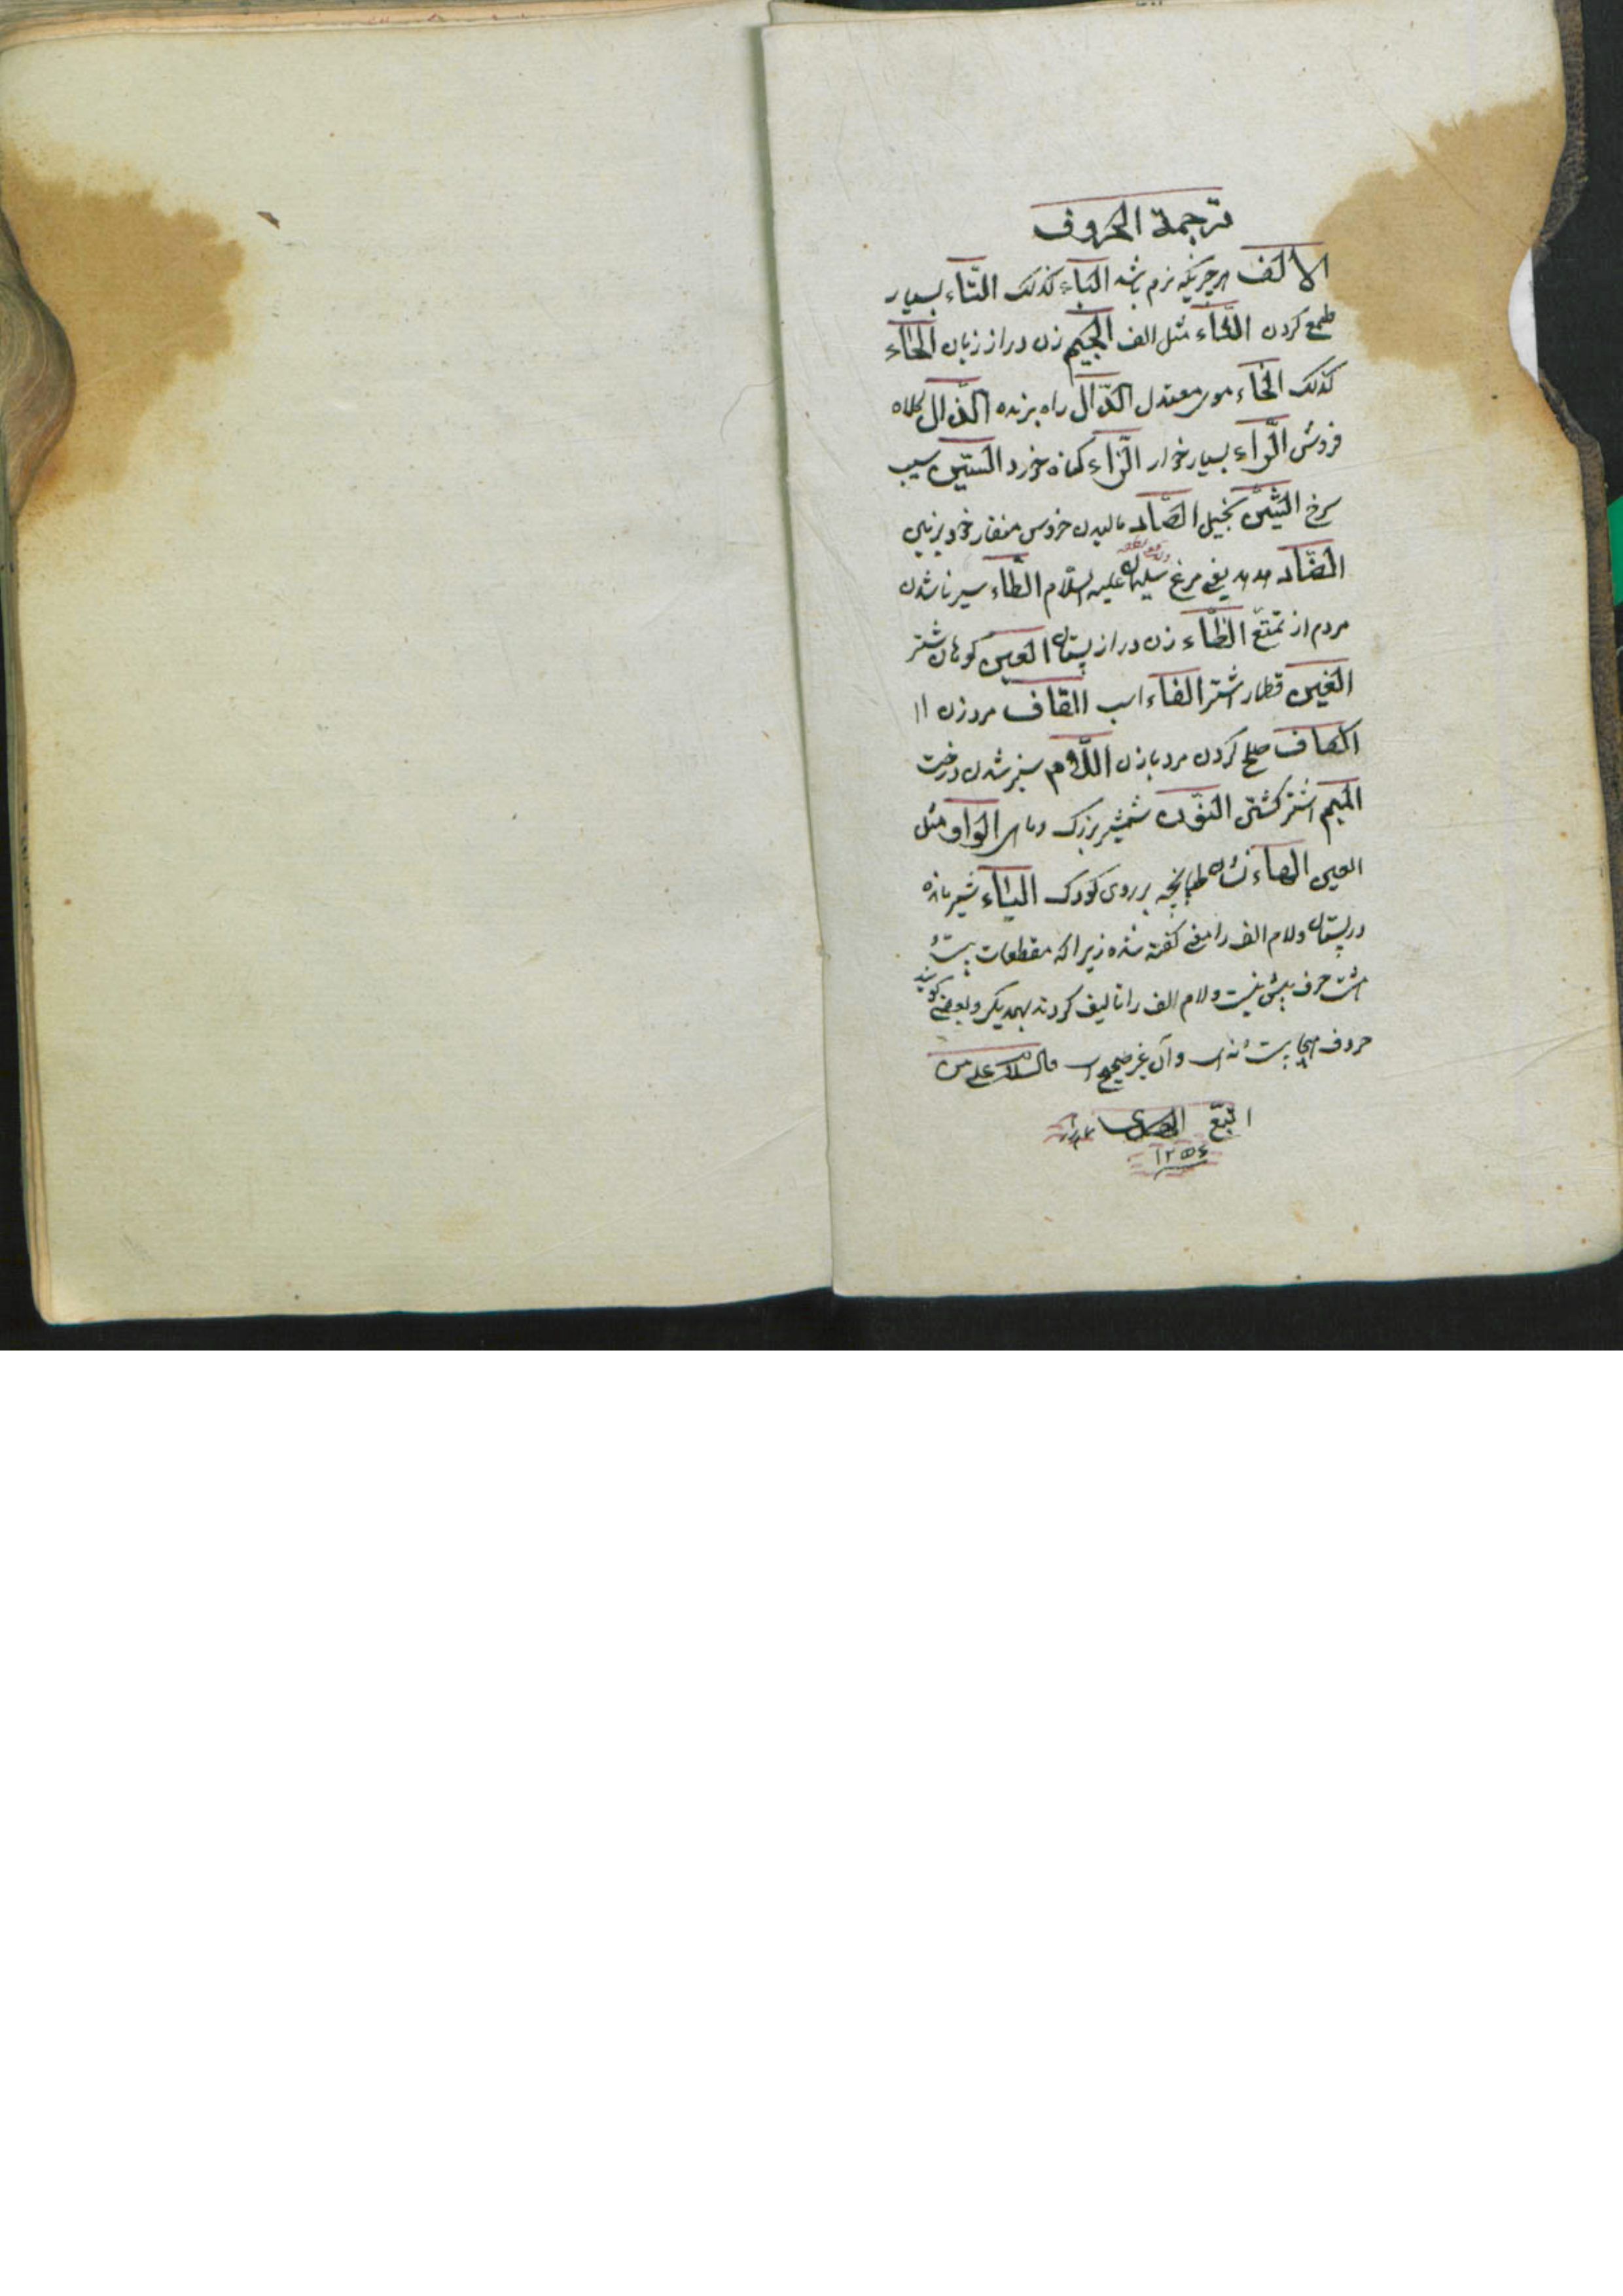 ترجمة الحروف
الالف هر چیزیکه نرم باشد الباء کذلک التاء بسیار
طمع کردن الثاء مثل الف الجیم زن دراز زبان الحاء
کذلک الخاء موی معتدل الدّال راه برنده الذّال کلاه
فروش الرّاء بسیار خوار الزّاء کناه خورد السّین سیب
سرخ الشّین بخیل الصّاد مالیدن خروس منقار خود بزمین
الضّاد هدهد یعنی مرغ سلیمان علیه السلام الطّاء سیر ناشدن
مردم از تمتع الظّاء زن دراز پستان العین کوهان شتر
الغین قطار اشتر الفاء اسب القاف مرد زن
الکاف صلح کردن مرد بازن اللّام سبز شدن درخت
المیم اشتر کشتی النّون شمشیر بزرک و ماهی الواو مثل
العین الهاء نشان طپانچه بر روی کودک الیاء شیر مانده
در پستان ولام الف را معنی کفته نشده زیرا که مقطعات بیست و
هشت حرف بیش نیست ولام الف را تالیف کردند بهمدیکر وبعضی کویند
حروف هجا بیست و نه است و آن غیر صحیح است والسلام علی من
اتبع الهدی
١٢٥٤